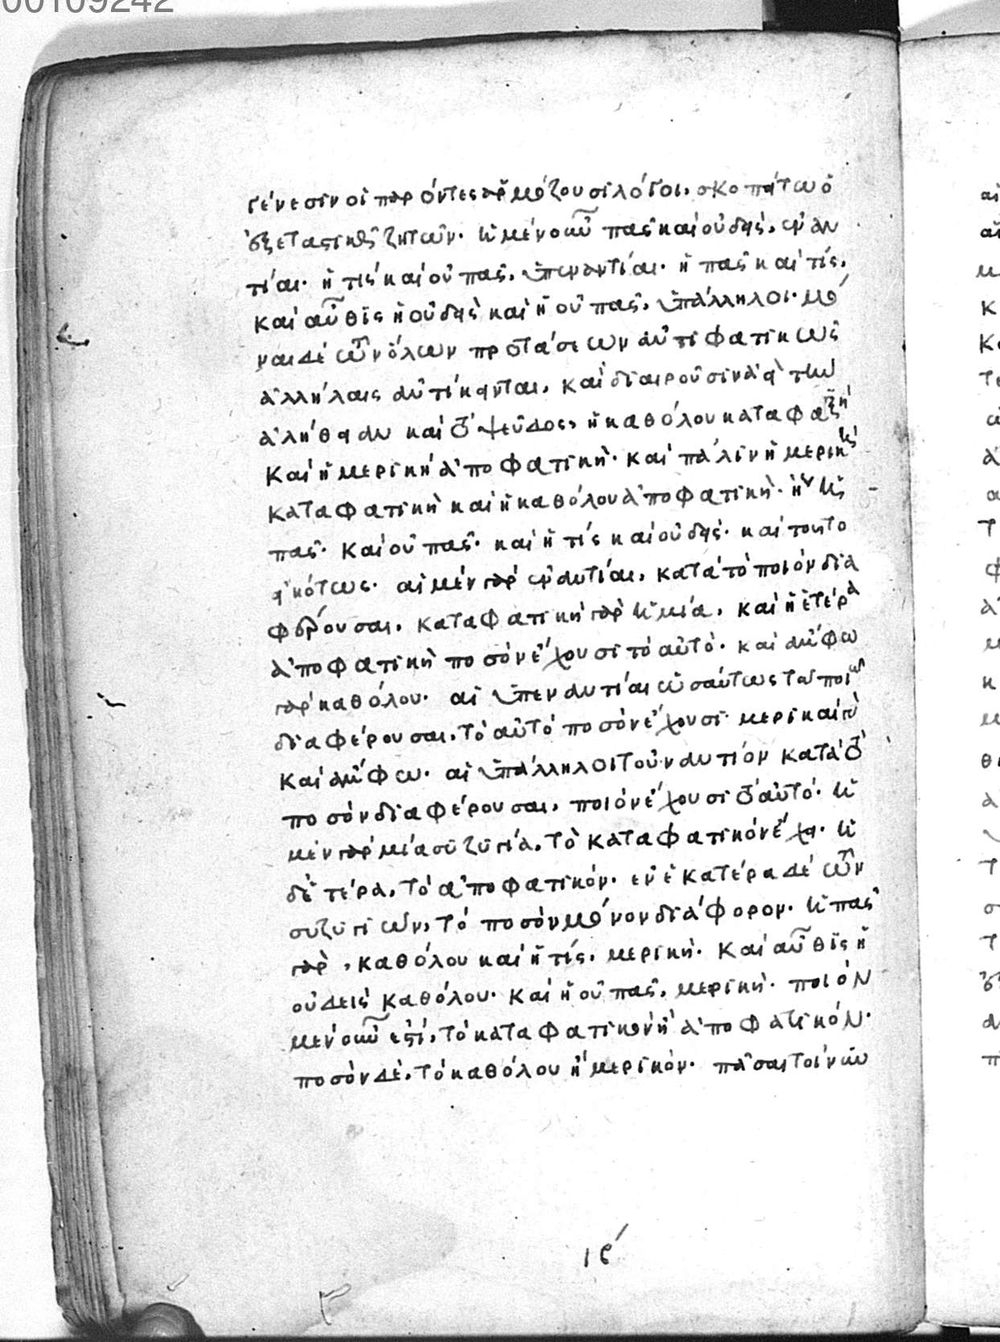 00109242
γένεσιν οἱ παρόντες ἁρμόζουσι λόγοι. σκοπείτω ὁ
ἐξεταστικῶς ζητῶν. ἡ μὲν οὖν πᾶς καὶ οὐδείς, ἐναν
τίαι. ἡ τίς καὶ οὐ πᾶς, ὑπεναντίαι. ἡ πᾶς καὶ τίς,
καὶ αὖθις ἡ οὐδεὶς καὶ ἡ οὐ πᾶς, ὑπάλληλοι. μό
ναι δὲ τῶν ὅλων προτάσεων ἀντιφατικῶς
ἀλλήλαις ἀντίκεινται, καὶ διαιροῦσιν ἀεὶ τὴν
ἀλήθειαν καὶ τὸ ψεῦδος, ἡ καθόλου καταφατικὴ
καὶ ἡ μερικὴ ἀποφατική. καὶ πάλιν ἡ μερικὴ
καταφατικὴ καὶ ἡ καθόλου ἀποφατική. ἤγουν ἡ
πᾶς καὶ οὐ πᾶς. καὶ ἡ τίς καὶ οὐδείς. καὶ τοῦτο
εἰκότως. αἱ μὲν γὰρ ἐναντίαι, κατὰ τὸ ποιὸν δια
φέρουσαι, καταφατικὴ γὰρ ἡ μία, καὶ ἡ ἑτέρα
ἀποφατικὴ ποσὸν ἔχουσι τὸ αὐτό. καὶ ἄμφω
γὰρ καθόλου. αἱ ὑπεναντίαι ὡσαύτως τῶ ποιῶ
διαφέρουσαι, τὸ αὐτὸ ποσὸν ἔχουσι μερικαὶ γὰρ
καὶ ἄμφω. αἱ ὑπάλληλοι τοὐναντίον κατὰ τὸ
ποσὸν διαφέρουσαι, ποιὸν ἔχουσι τὸ αὐτό. ἡ
μὲν γὰρ μία συζυγία, τὸ καταφατικὸν ἔχει. ἡ
δὲ τέρα, τὸ ἀποφατικόν. ἐν ἑκατέρα δὲ τῶν
συζυγιῶν, τὸ ποσὸν μόνον διάφορον. ἡ πᾶς
γὰρ, καθόλου καὶ ἡ τίς, μερική. καὶ αὖθις ἡ
οὐδεὶς καθόλου. καὶ ἡ οὐ πᾶς, μερική. ποιὸν
μὲν οὖν ἐστί, τὸ καταφατικὸν ἢ ἀποφατικόν.
ποσὸν δὲ, τὸ καθόλου ἢ μερικόν. πᾶσαι τοίνυν
ιε´